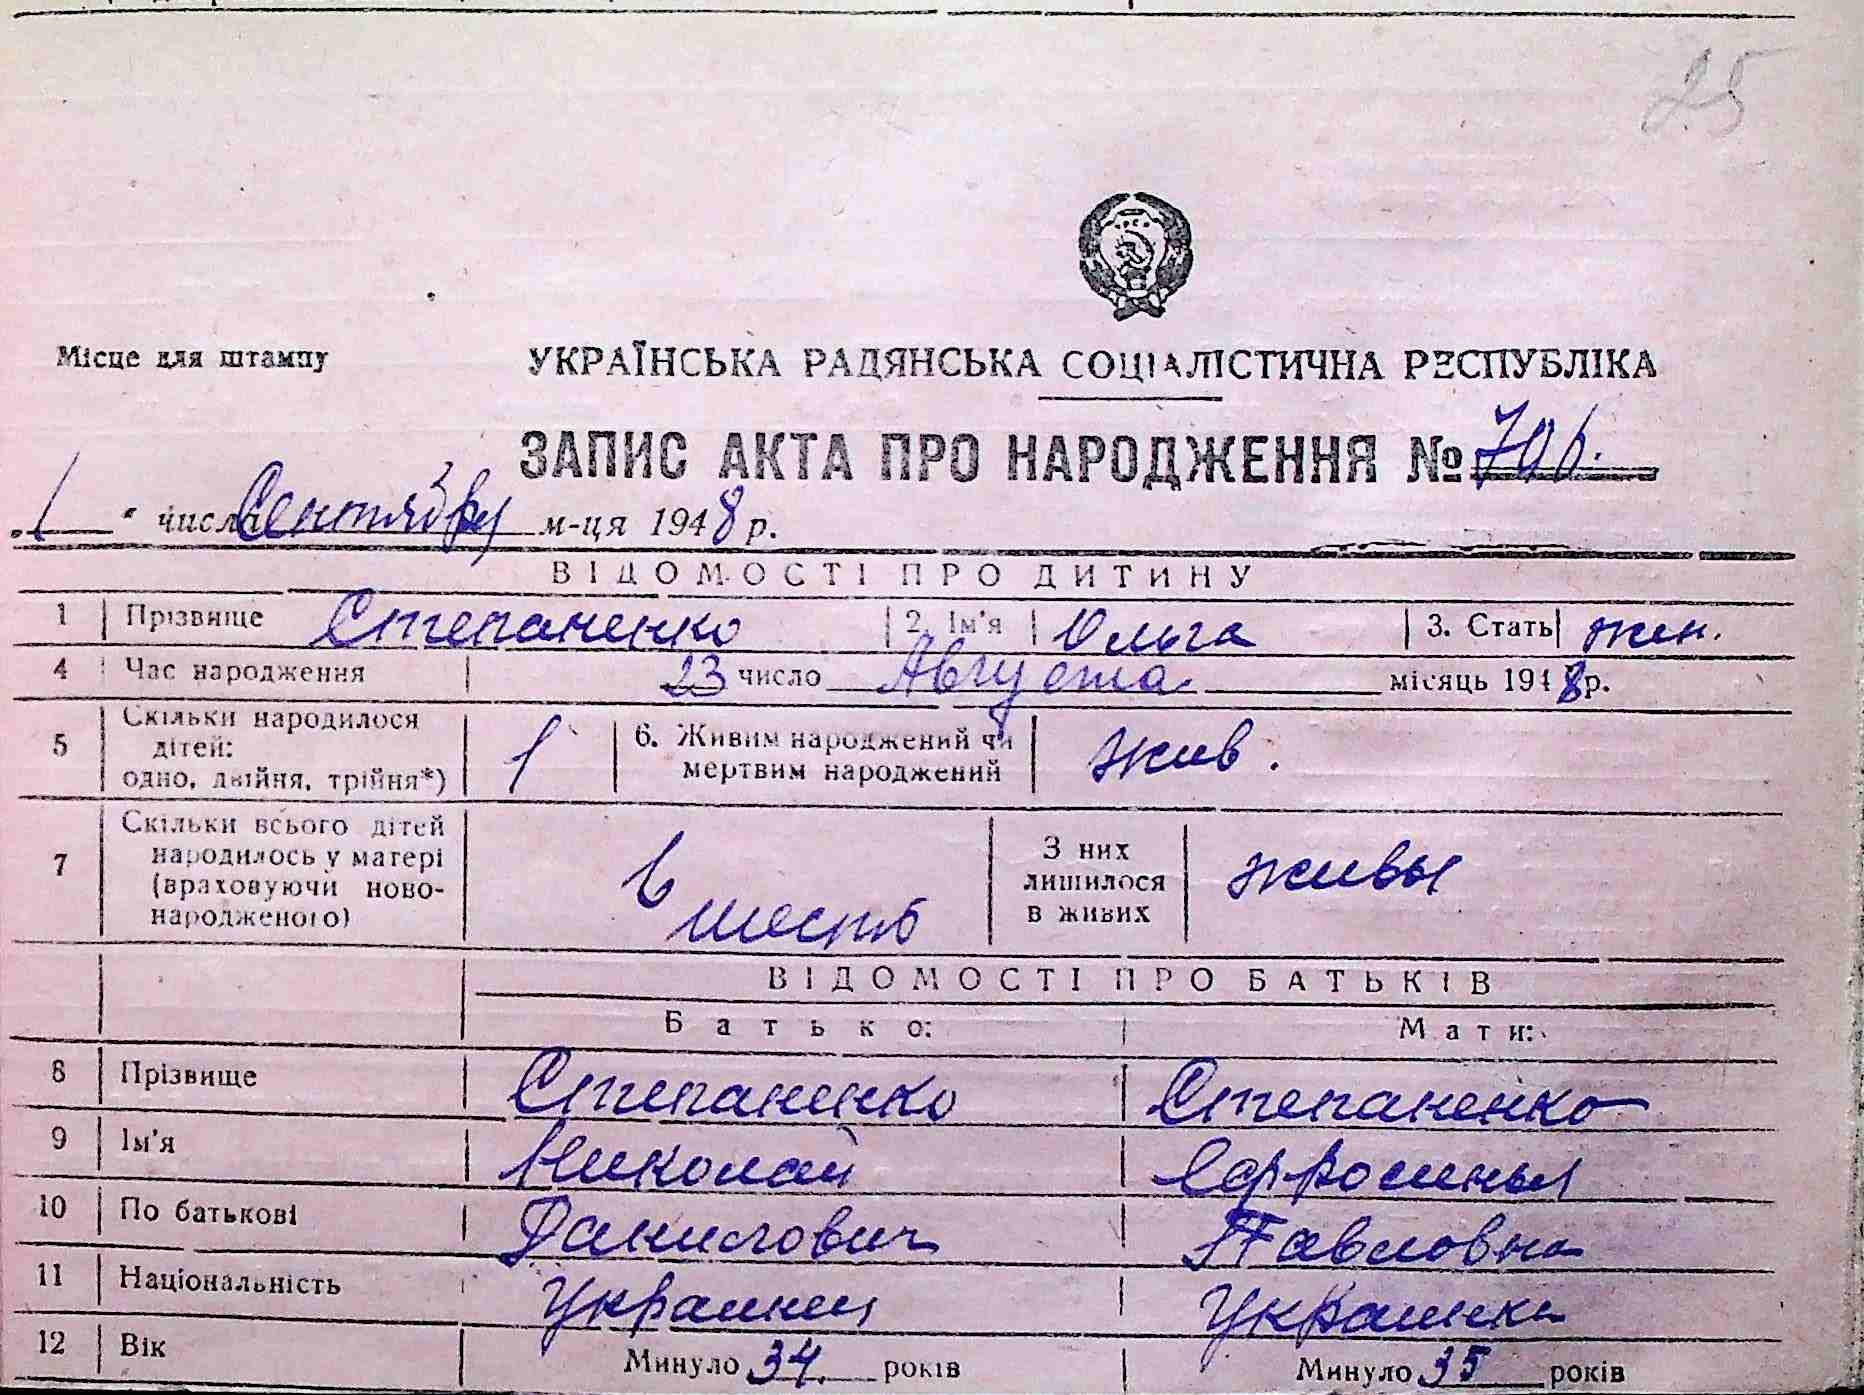 25
Місце для штампу
УКРАЇНСЬКА РАДЯНСЬКА СОЦІАЛІСТИЧНА РЕСПУБЛІКА
ЗАПИС АКТА ПРО НАРОДЖЕННЯ № 706.
„1“ числа Сентября м-ця 1948 р.
ВІДОМОСТІ ПРО ДИТИНУ
1 Прізвище Степаненко 2. Ім'я Ольга 3. Стать жен.
4 Час народження 23 число Августа місяць 1948 р.
5 Скільки народилося дітей: одно, двійня, трійня*) 1 6. Живим народжений чи мертвим народжений жив.
7 Скільки всього дітей народилось у матері (враховуючи новонародженого) 6 шесть З них лишилося в живих живы
ВІДОМОСТІ ПРО БАТЬКІВ
Батько: Мати:
8 Прізвище Степаненко Степаненко
9 Ім'я Николай Ефросинья
10 По батькові Данилович Павловна
11 Національність Украинец Украинка
12 Вік Минуло 34. років Минуло 35 років